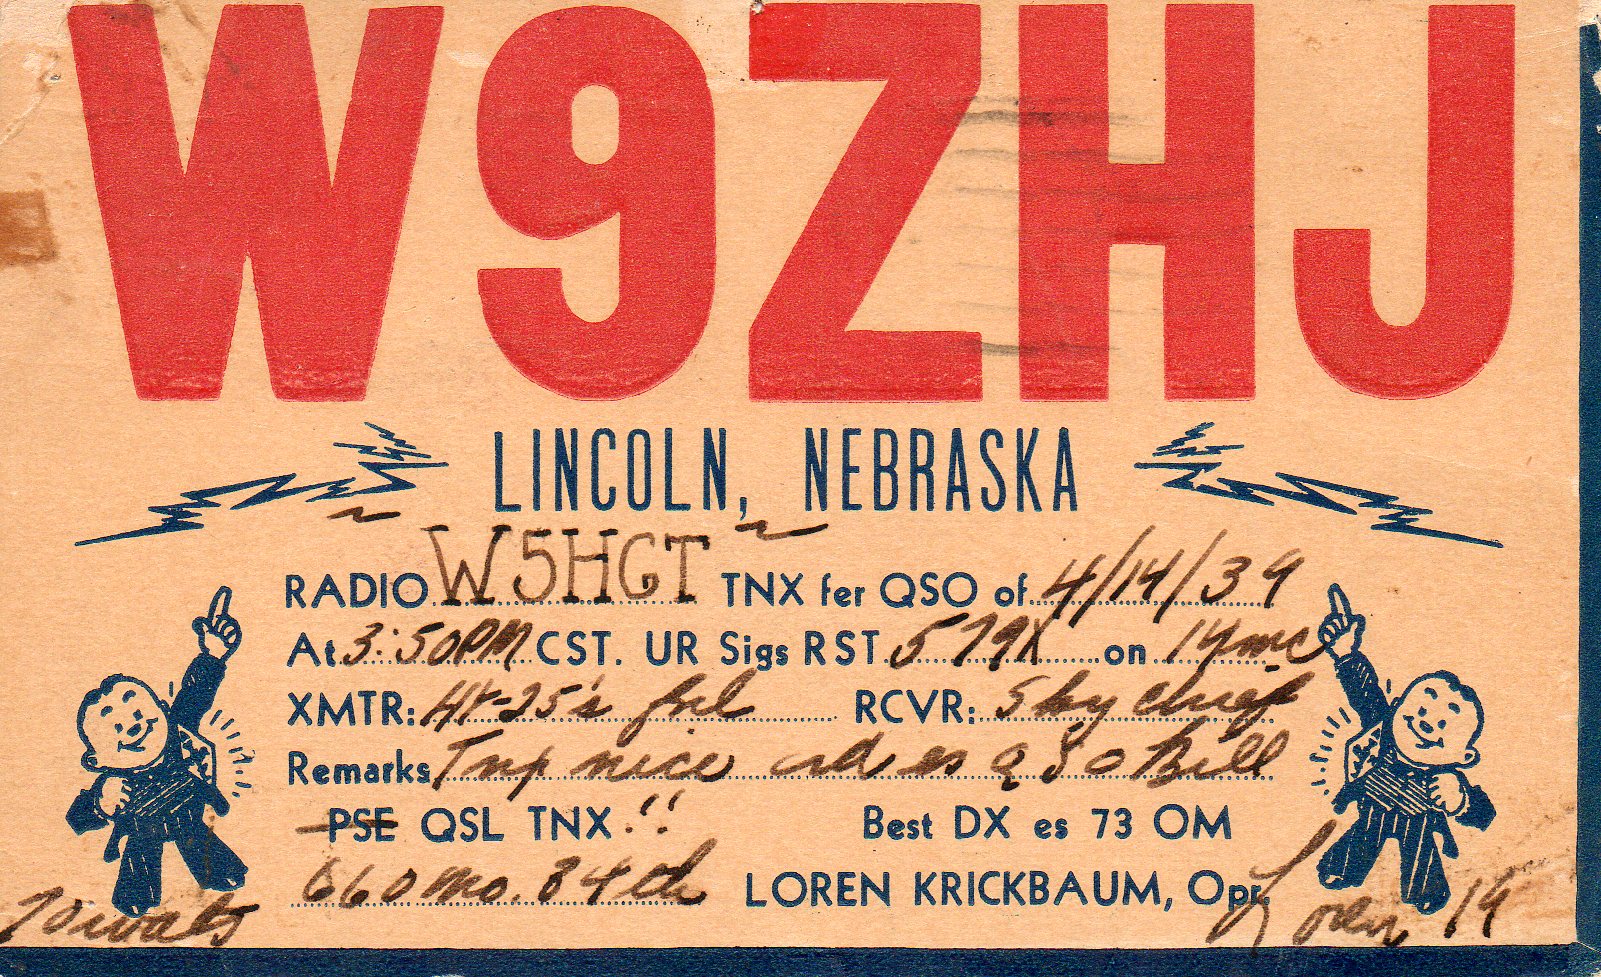 W9ZHJ
LINCOLN, NEBRASKA
RADIO W5HGT TNX fer QSO of 4/14/39
At 3:50PM CST. UR Sigs RST 579X on 14mc
XMTR: HY-25's fnl RCVR: Sky chief
Remarks Tnx nice crd es QSO Bill
PSE QSL TNX !! Best DX es 73 OM
660 no. 84th LOREN KRICKBAUM, Opr.
70 watts Loren 19